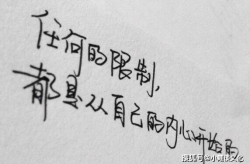 任何的限制，
都是从自己的内心开始的
搜狐号@小刚侃文化